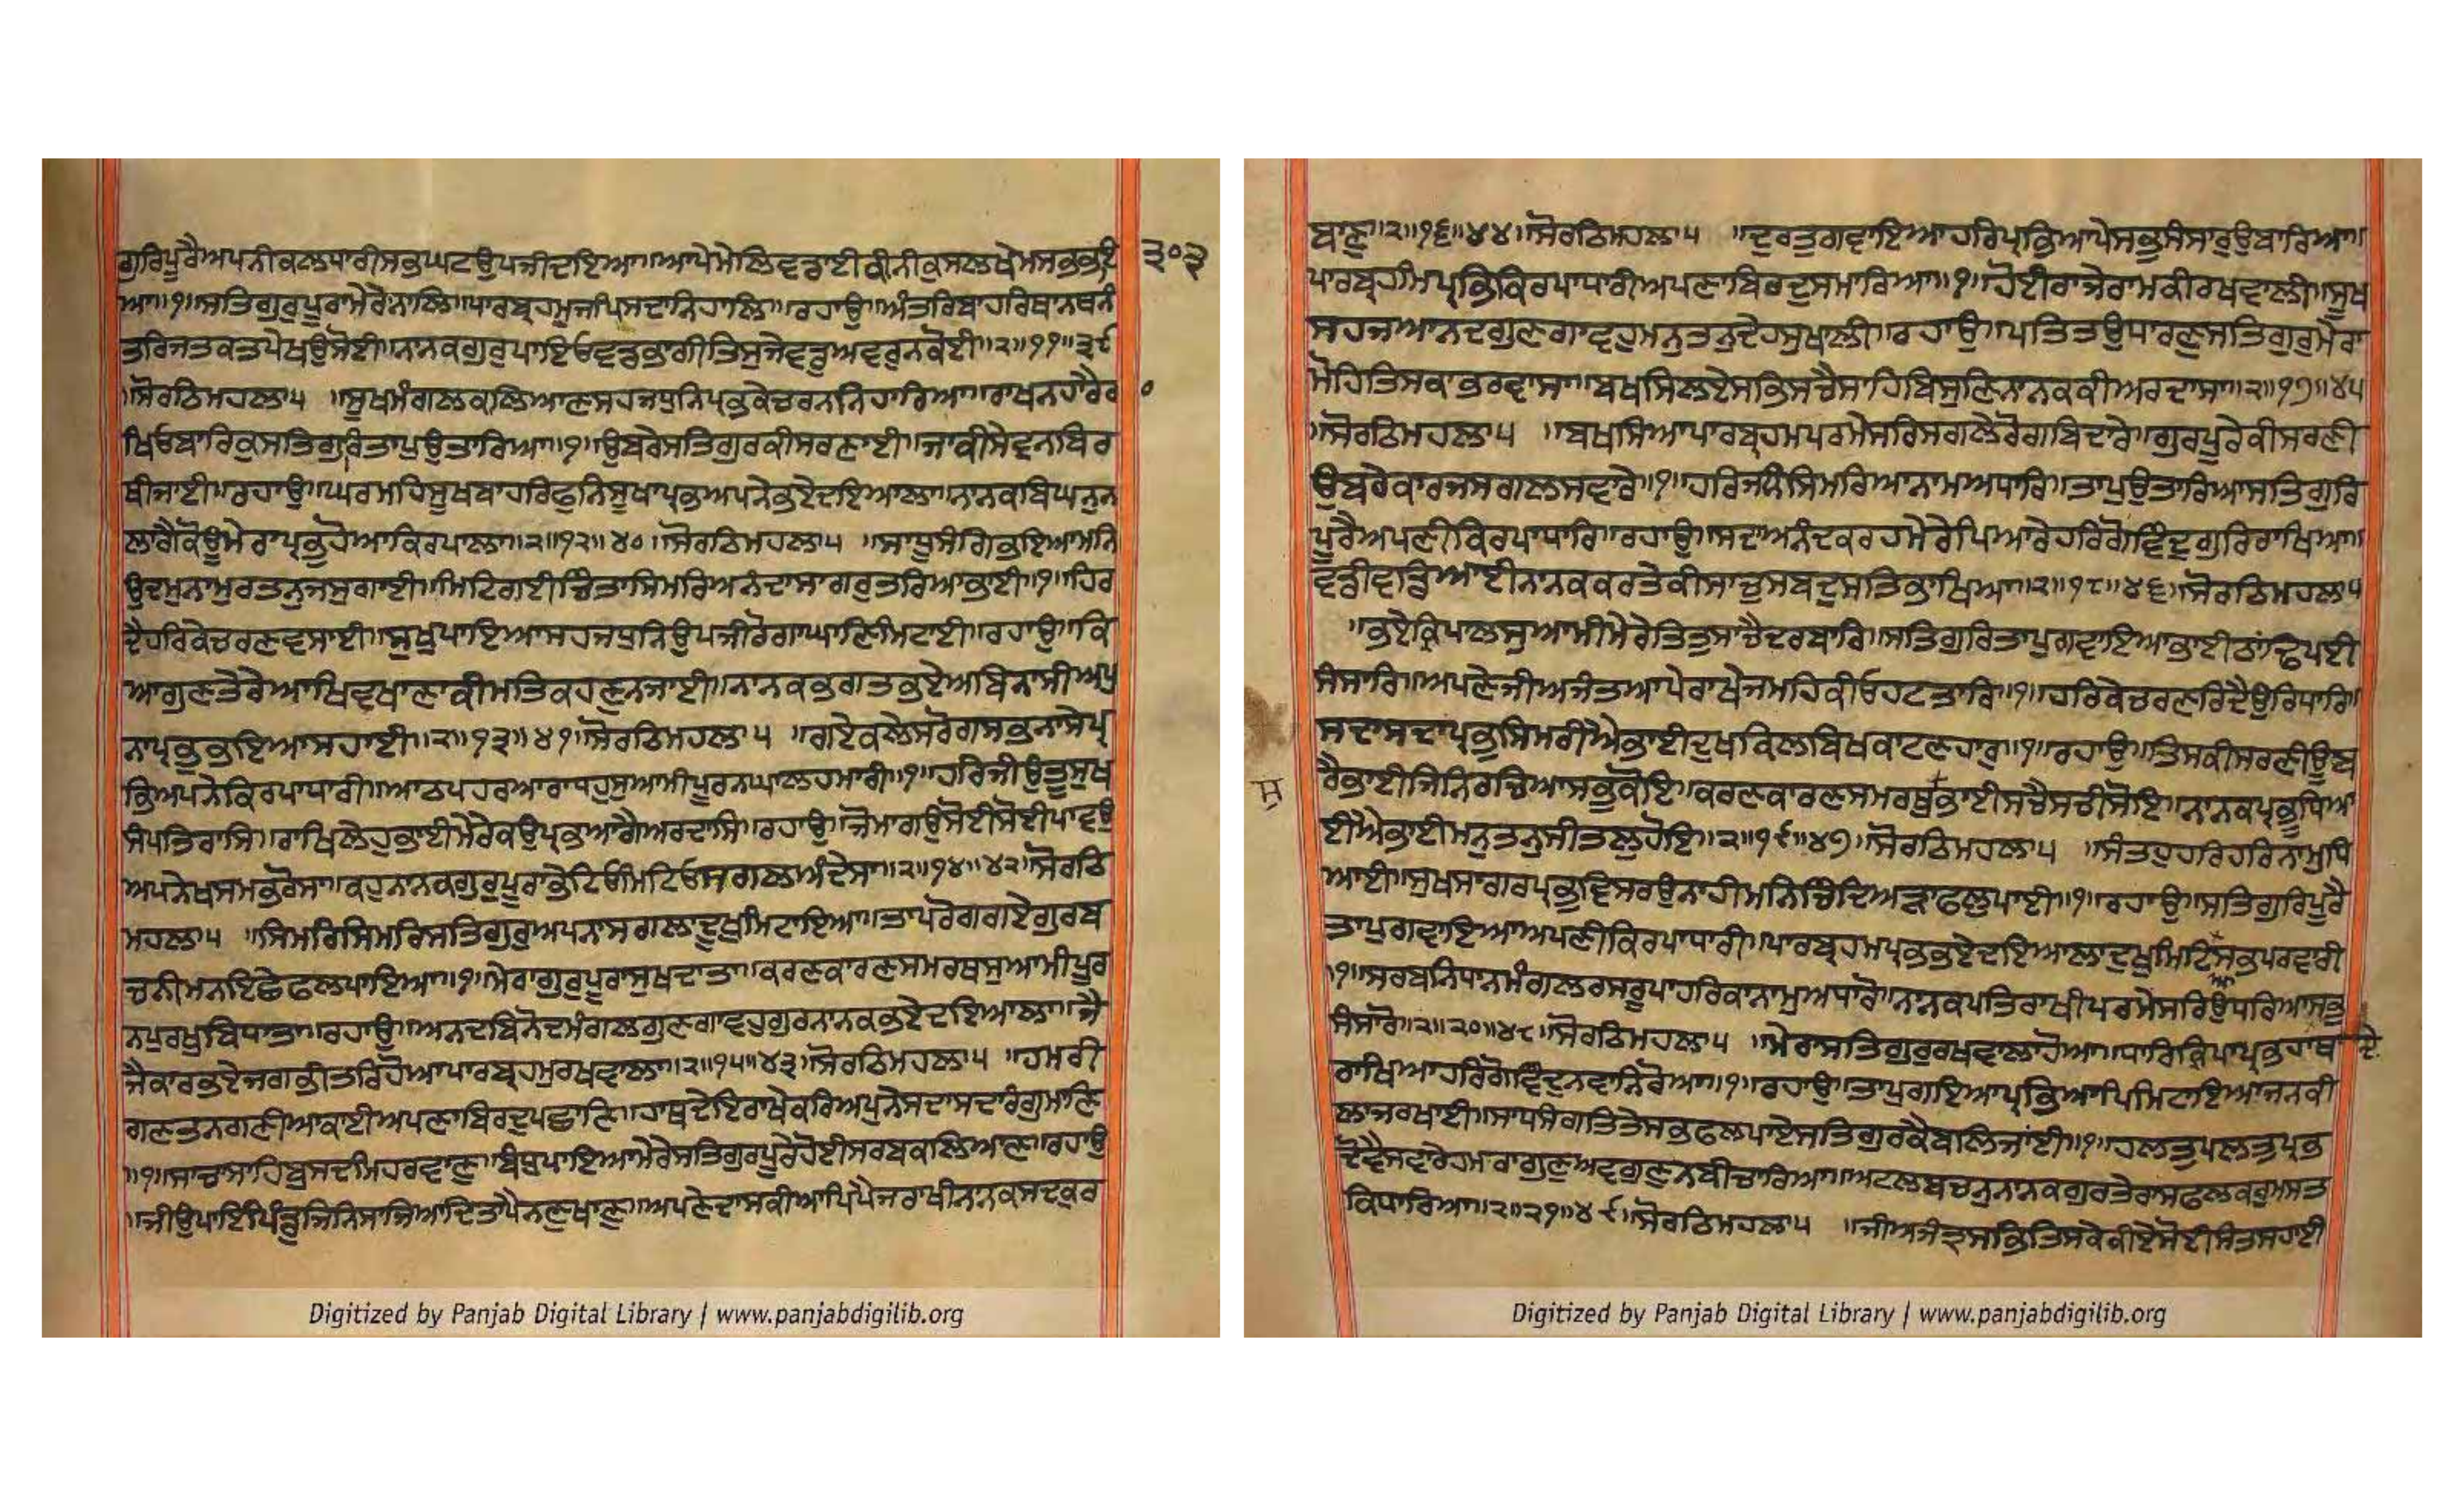 ਗੁਰਿਪੂਰੈਅਪਨੀਕਲਧਾਰੀਸਭਘਟਉਪਜੀਦਇਆ॥ਆਪੇਮੇਲਿਵਡਾਈਕੀਨੀਕੁਸਲਖੇਮਸਭਭਈ ੩੦੩
ਆ॥੧॥ਸਤਿਗੁਰੁਪੂਰਾਮੇਰੈਨਾਲਿ॥ਪਾਰਬ੍ਰਹਮੁਜਪਿਸਦਾਨਿਹਾਲਿ॥ਰਹਾਉ॥ਅੰਤਰਿਬਾਹਰਿਥਾਨਥਨੰ
ਤਰਿਜਤਕਤਪੇਖਉਸੋਈ॥ਨਾਨਕਗੁਰੁਪਾਇਓਵਡਭਾਗੀਤਿਸੁਜੇਵਡੁਅਵਰੁਨਕੋਈ॥੨॥੧੧॥੩੯
॥ਸੋਰਠਿਮਹਲਾ੫ ॥ਸੂਖਮੰਗਲਕਲਿਆਣਸਹਜਧੁਨਿਪ੍ਰਭਕੇਚਰਨਨਿਹਾਰਿਆ॥ਰਾਖਨਹਾਰੈਰਾ
ਖਿਓਬਾਰਿਕੁਸਤਿਗੁਰਿਤਾਪੁਉਤਾਰਿਆ॥੧॥ਉਬਰੇਸਤਿਗੁਰਕੀਸਰਣਾਈ॥ਜਾਕੀਸੇਵਨਬਿਰ
ਥੀਜਾਈ॥ਰਹਾਉ॥ਘਰਮਹਿਸੂਖਬਾਹਰਿਫੁਨਿਸੂਖਾਪ੍ਰਭਅਪਨੇਭਏਦਇਆਲਾ॥ਨਾਨਕਬਿਘਨੁਨ
ਲਾਗੈਕੋਊਮੇਰਾਪ੍ਰਭੁਹੋਆਕਿਰਪਾਲਾ॥੨॥੧੨॥੪੦॥ਸੋਰਠਿਮਹਲਾ੫ ॥ਸਾਧੂਸੰਗਿਭਇਆਮਨਿ
ਉਦਮੁਨਾਮੁਰਤਨੁਜਸੁਗਾਈ॥ਮਿਟਿਗਈਚਿੰਤਾਸਿਮਰਿਅਨੰਦਾਸਾਗਰੁਤਰਿਆਭਾਈ॥੧॥ਹਿਰ
ਦੈਹਰਿਕੇਚਰਣਵਸਾਈ॥ਸੁਖੁਪਾਇਆਸਹਜਧੁਨਿਉਪਜੀਰੋਗਾਘਾਣਿਮਿਟਾਈ॥ਰਹਾਉ॥ਕਿ
ਆਗੁਣਤੇਰੇਆਖਿਵਖਾਣਾਕੀਮਤਿਕਹਣੁਨਜਾਈ॥ਨਾਨਕਭਗਤਭਏਅਬਿਨਾਸੀਅਪੁ
ਨਾਪ੍ਰਭੁਭਇਆਸਹਾਈ॥੨॥੧੩॥੪੧॥ਸੋਰਠਿਮਹਲਾ੫ ॥ਗਏਕਲੇਸਰੋਗਸਭਨਾਸੇਪ੍ਰ
ਭਿਅਪਨੇਕਿਰਪਾਧਾਰੀ॥ਆਠਪਹਰਆਰਾਧਹੁਸੁਆਮੀਪੂਰਨਘਾਲਹਮਾਰੀ॥੧॥ਹਰਿਜੀਉਤੂਸੁਖ
ਸੰਪਤਿਰਾਸਿ॥ਰਾਖਿਲੈਹੁਭਾਈਮੇਰੇਕਉਪ੍ਰਭਆਗੈਅਰਦਾਸਿ॥ਰਹਾਉ॥ਜੋਮਾਗਉਸੋਈਸੋਈਪਾਵਉ
ਅਪਨੇਖਸਮਭਰੋਸਾ॥ਕਹੁਨਾਨਕਗੁਰੁਪੂਰਾਭੇਟਿਓਮਿਟਿਓਸਗਲਅੰਦੇਸਾ॥੨॥੧੪॥੪੨॥ਸੋਰਠਿ
ਮਹਲਾ੫ ॥ਸਿਮਰਿਸਿਮਰਿਸਤਿਗੁਰੁਅਪਨਾਸਗਲਾਦੂਖੁਮਿਟਾਇਆ॥ਤਾਪਰੋਗਗਏਗੁਰਬ
ਚਨੀਮਨਇਛੇਫਲਪਾਇਆ॥੧॥ਮੇਰਾਗੁਰੁਪੂਰਾਸੁਖਦਾਤਾ॥ਕਰਣਕਾਰਣਸਮਰਥਸੁਆਮੀਪੂਰ
ਨਪੁਰਖੁਬਿਧਾਤਾ॥ਰਹਾਉ॥ਅਨਦਬਿਨੋਦਮੰਗਲਗੁਣਗਾਵਹੁਗੁਰਨਾਨਕਭਏਦਇਆਲਾ॥ਜੈ
ਜੈਕਾਰਭਏਜਗਭੀਤਰਿਹੋਆਪਾਰਬ੍ਰਹਮੁਰਖਵਾਲਾ॥੨॥੧੫॥੪੩॥ਸੋਰਠਿਮਹਲਾ੫ ॥ਹਮਰੀ
ਗਣਤਨਗਣੀਆਕਾਈਅਪਣਾਬਿਰਦੁਪਛਾਣਿ॥ਹਾਥਦੇਇਰਾਖੇਕਰਿਅਪੁਨੇਸਦਾਸਦਾਰੰਗੁਮਾਣਿ
॥੧॥ਸਾਚਾਸਾਹਿਬੁਸਦਮਿਹਰਵਾਣ॥ਬੰਧੁਪਾਇਆਮੇਰੈਸਤਿਗੁਰਪੂਰੈਹੋਈਸਰਬਕਲਿਆਣ॥ਰਹਾਉ
॥ਜੀਉਪਾਇਪਿੰਡੁਜਿਨਿਸਾਜਿਆਦਿਤਾਪੈਨਣੁਖਾਣੁ॥ਅਪਣੇਦਾਸਕੀਆਪਿਪੈਜਰਾਖੀਨਾਨਕਸਦਕੁਰ
ਬਾਣੁ॥੨॥੧੬॥੪੪॥ਸੋਰਠਿਮਹਲਾ੫ ॥ਦੁਰਤੁਗਵਾਇਆਹਰਿਪ੍ਰਭਿਆਪੇਸਭੁਸੰਸਾਰੁਉਬਾਰਿਆ॥
ਪਾਰਬ੍ਰਹਮਿਪ੍ਰਭਿਕਿਰਪਾਧਾਰੀਅਪਣਾਬਿਰਦੁਸਮਾਰਿਆ॥੧॥ਹੋਈਰਾਜੇਰਾਮਕੀਰਖਵਾਲੀ॥ਸੂਖ
ਸਹਜਆਨਦਗੁਣਗਾਵਹੁਮਨੁਤਨੁਦੇਹਸੁਖਾਲੀ॥ਰਹਾਉ॥ਪਤਿਤਉਧਾਰਣੁਸਤਿਗੁਰੁਮੇਰਾ
ਮੋਹਿਤਿਸਕਾਭਰਵਾਸਾ॥ਬਖਸਿਲਏਸਭਿਸਚੈਸਾਹਿਬਿਸੁਣਿਨਾਨਕਕੀਅਰਦਾਸਾ॥੨॥੧੭॥੪੫
॥ਸੋਰਠਿਮਹਲਾ੫ ॥ਬਖਸਿਆਪਾਰਬ੍ਰਹਮਪਰਮੇਸਰਿਸਗਲੇਰੋਗਬਿਦਾਰੇ॥ਗੁਰਪੂਰੇਕੀਸਰਣੀ
ਉਬਰੇਕਾਰਜਸਗਲਸਵਾਰੇ॥੧॥ਹਰਿਜਨਿਸਿਮਰਿਆਨਾਮਅਧਾਰਿ॥ਤਾਪੁਉਤਾਰਿਆਸਤਿਗੁਰਿ
ਪੂਰੈਅਪਣੀਕਿਰਪਾਧਾਰਿ॥ਰਹਾਉ॥ਸਦਾਅਨੰਦਕਰਹਮੇਰੇਪਿਆਰੇਹਰਿਗੋਵਿੰਦੁਗੁਰਿਰਾਖਿਆ॥
ਵਡੀਵਡਿਆਈਨਾਨਕਕਰਤੇਕੀਸਾਚੁਸਬਦੁਸਤਿਭਾਖਿਆ॥੨॥੧੮॥੪੬॥ਸੋਰਠਿਮਹਲਾ੫
॥ਭਏਕ੍ਰਿਪਾਲਸੁਆਮੀਮੇਰੇਤਿਤੁਸਾਚੈਦਰਬਾਰਿ॥ਸਤਿਗੁਰਿਤਾਪੁਗਵਾਇਆਭਾਈਠਾਂਢਿਪਈ
ਸੰਸਾਰਿ॥ਅਪਣੇਜੀਅਜੰਤਆਪੇਰਾਖੇਜਮਹਿਕੀਓਹਟਤਾਰਿ॥੧॥ਹਰਿਕੇਚਰਣਰਿਦੈਉਰਿਧਾਰਿ॥
ਸਦਾਸਦਾਪ੍ਰਭੁਸਿਮਰੀਐਭਾਈਦੁਖਕਿਲਬਿਖਕਾਟਣਹਾਰੁ॥੧॥ਰਹਾਉ॥ਤਿਸਕੀਸਰਣੀਊਬ
ਰੈਭਾਈਜਿਨਿਰਚਿਆਸਭੁਕੋਇ॥ਕਰਣਕਾਰਣਸਮਰਥੁ+ਭਾਈਸਚੈਸਚੀਸੋਇ॥ਨਾਨਕਪ੍ਰਭੂਧਿਆ
ਸੁ
ਈਐਭਾਈਮਨੁਤਨੁਸੀਤਲੁਹੋਇ॥੨॥੧੯॥੪੭॥ਸੋਰਠਿਮਹਲਾ੫ ॥ਸੰਤਹੁਹਰਿਹਰਿਨਾਮੁਧਿ
ਆਈ॥ਸੁਖਸਾਗਰਪ੍ਰਭੁਵਿਸਰਉਨਾਹੀਮਨਿਚਿੰਦਿਅੜਾਫਲੁਪਾਈ॥੧॥ਰਹਾਉ॥ਸਤਿਗੁਰਿਪੂਰੈ
ਤਾਪੁਗਵਾਇਆਅਪਣੀਕਿਰਪਾਧਾਰੀ॥ਪਾਰਬ੍ਰਹਮਪ੍ਰਭਭਏਦਇਆਲਾਦੁਖੁਮਿਟਿਸਭਪਰਵਾਰੀ
॥੧॥ਸਰਬਨਿਧਾਨਮੰਗਲਰਸਰੂਪਾਹਰਿਕਾਨਾਮੁਅਧਾਰੋ॥ਨਾਨਕਪਤਿਰਾਖੀਪਰਮੇਸਰਿਉਧਰਿਆਸਭੁ
ਸੰਸਾਰੋ॥੨॥੨੦॥੪੮॥ਸੋਰਠਿਮਹਲਾ੫ ॥ਮੇਰਾਸਤਿਗੁਰੁਰਖਵਾਲਾਹੋਆ॥ਧਾਰਿਕ੍ਰਿਪਾਪ੍ਰਭਹਾਥ ਦੇ
ਰਾਖਿਆਹਰਿਗੋਵਿੰਦੁਨਵਾਨਿਰੋਆ॥੧॥ਰਹਾਉ॥ਤਾਪੁਗਇਆਪ੍ਰਭਿਆਪਿਮਿਟਾਇਆਜਨਕੀ
ਲਾਜਰਖਾਈ॥ਸਾਧਸੰਗਤਿਤੇਸਭਫਲਪਾਏਸਤਿਗੁਰਕੈਬਲਿਜਾਂਈ॥੧॥ਹਲਤੁਪਲਤੁਪ੍ਰਭ
ਦੋਵੈਸਵਾਰੇਹਮਰਾਗੁਣੁਅਵਗੁਣੁਨਬੀਚਾਰਿਆ॥ਅਟਲਬਚਨੁਨਾਨਕਗੁਰਤੇਰਾਸਫਲਕਰੁਮਸਤ
ਕਿਧਾਰਿਆ॥੨॥੨੧॥੪੯॥ਸੋਰਠਿਮਹਲਾ੫ ॥ਜੀਅਜੰਤ੍ਰਸਭਿਤਿਸਕੇਕੀਏਸੋਈਸੰਤਸਹਾਈ
Digitized by Panjab Digital Library | www.panjabdigilib.org
Digitized by Panjab Digital Library | www.panjabdigilib.org